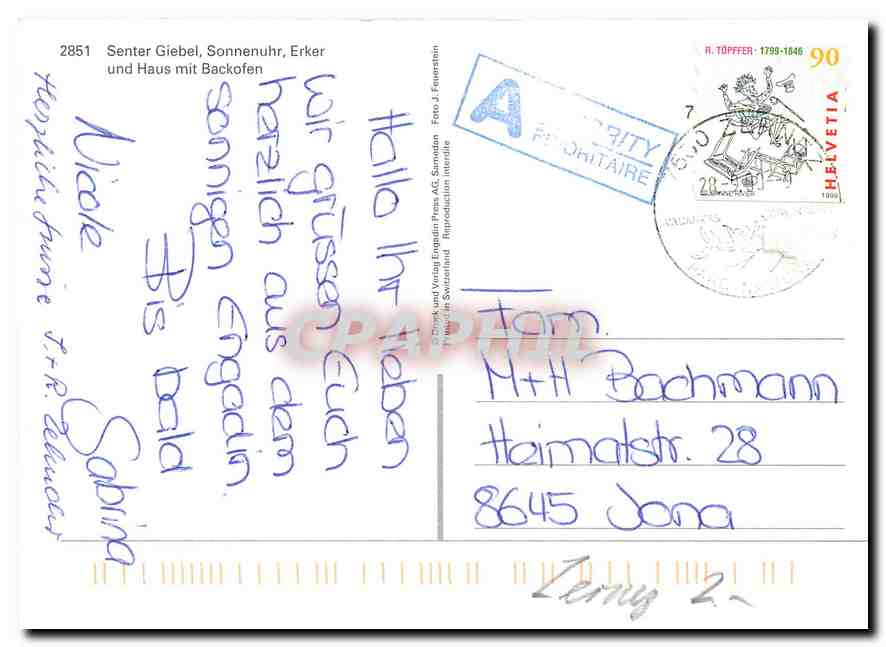 2851 Senter Giebel, Sonnenuhr, Erker
und Haus mit Backofen
Hallo Ihr Lieben
Wir grüssen Euch
herzlich aus dem
sonnigen Engadin.
Bis bald
Nicole Sabrina
Herzliche Grüsse
© Druck und Verlag Engadin Press AG, Samedan Foto J. Feuerstein
Printed in Switzerland Reproduction interdite
A PRIORITY
PRIORITAIRE
R. TÖPFFER · 1799-1846 90
HELVETIA
1999
Fam.
M+H Bachmann
Heimatstr. 28
8645 Jona
CPAPHIL
2.-